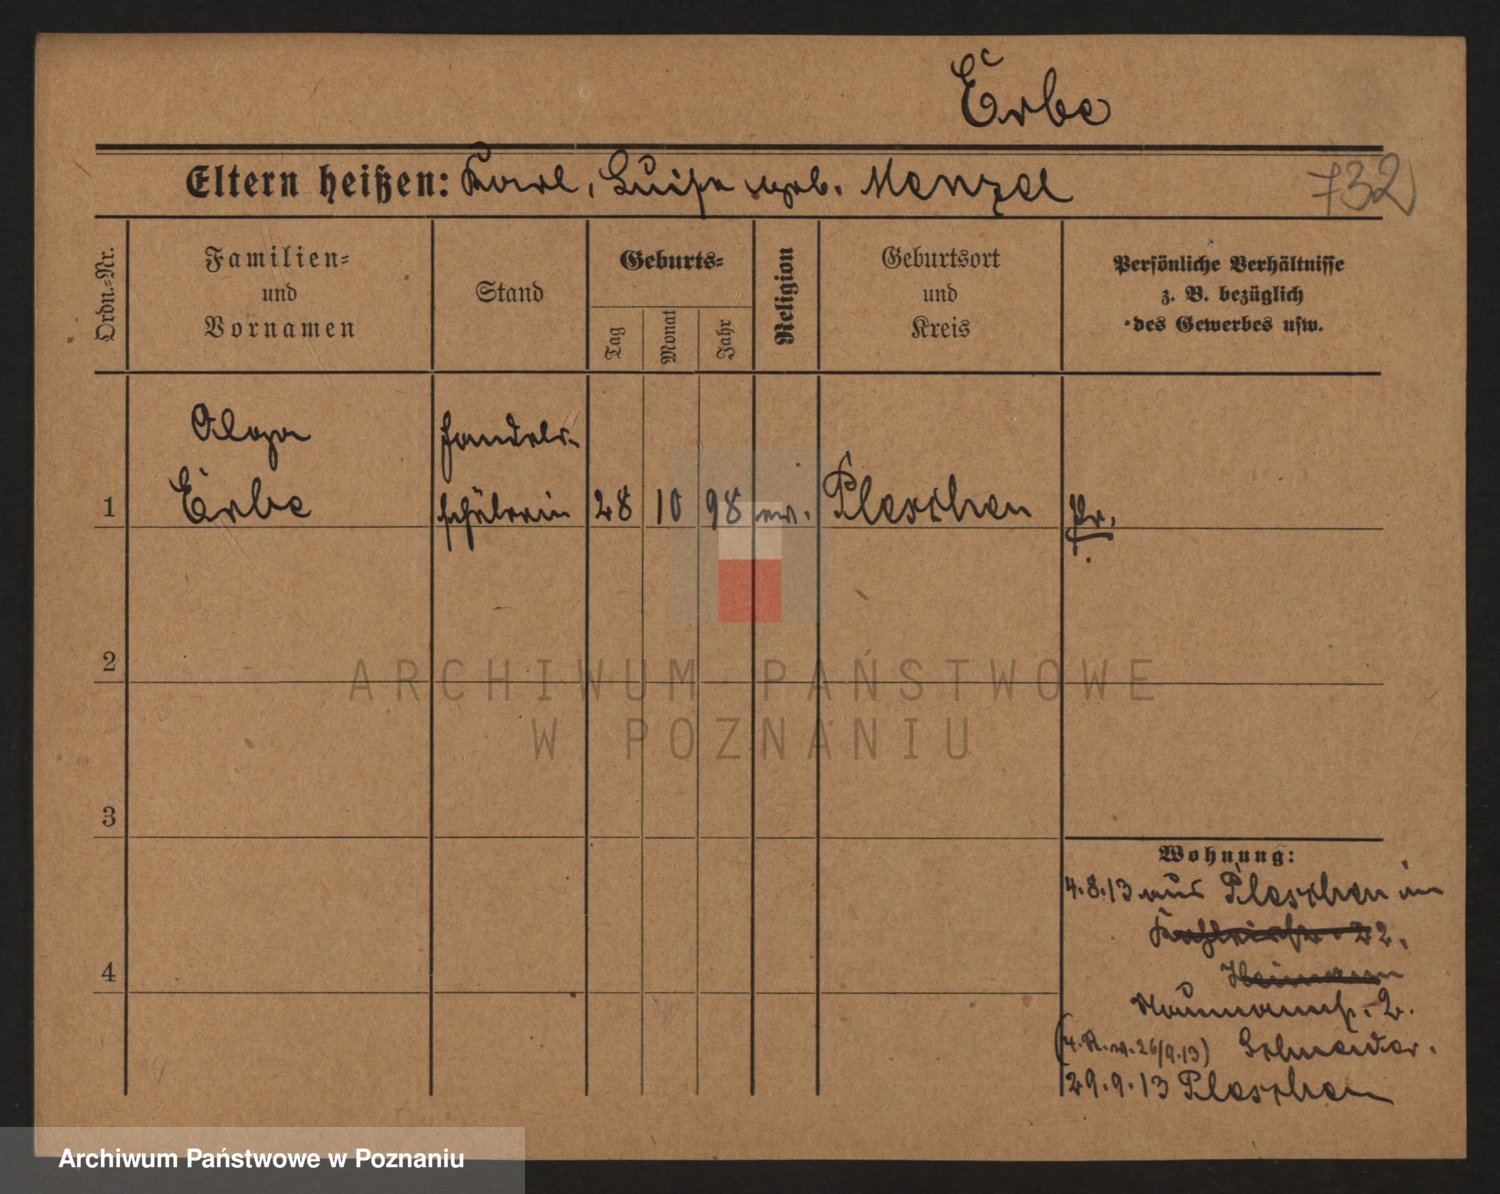 Erbe
Eltern heißen: Karl, Luise geb. Menzel
732
Ordn.-Nr.
Familien-
und
Vornamen
Stand
Geburts-
Tag
Monat
Jahr
Religion
Geburtsort
und
Kreis
Persönliche Verhältnisse
z. B. bezüglich
des Gewerbes usw.
Handels-
Erbe
1
schülerin
28
10
98
ev.
Pleschen
Pr.
2
ARCHIWUM PAŃSTWOWE
W POZNANIU
3
4
Wohnung:
4.8.13 aus Pleschen in
22.
Heimann
Naumannstr. 2.
26/9.13) Schneider.
29.9.13 Pleschen
Archiwum Państwowe w Poznaniu